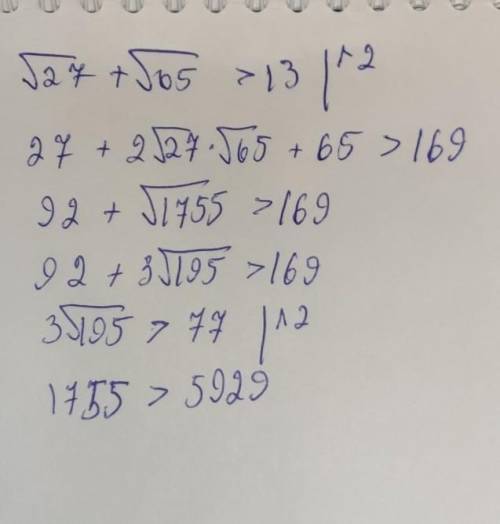 √27 + √65 > 13 |^2
27 + 2√27·√65 + 65 > 169
92 + √1755 > 169
92 + 3√195 > 169
3√195 > 77 |^2
1755 > 5929